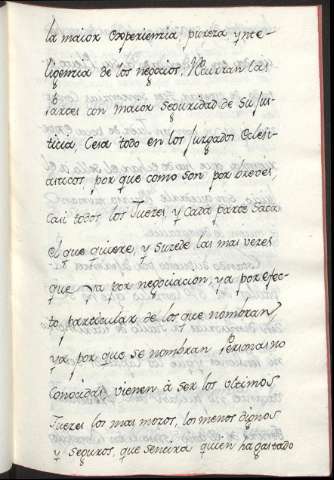 la maior experiencia pureza y ynte-
ligencia de los negocios, Ocurran las
partes con maior seguridad de su Jus-
ticia, Cesa todo en los Jurgados Eclesi-
asticos, por que como son por breves,
Casi todos los Jueces, y Cada parte saca
el que quiere, y sucede las mas veces
que ya por negociacion, ya por efec-
to particular de los que nombran,
ya por que se nombran Personas no
Conocidas vienen à ser los ultimos
Jueces los mas mozos, los menos dignos
y seguros, que sentira quien ha gastado